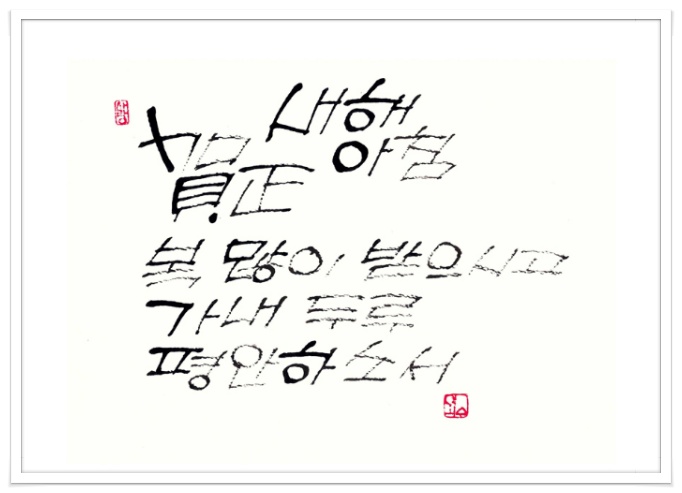 새해
아침
賀正
복 많이 받으시고
가내 두루
평안하소서